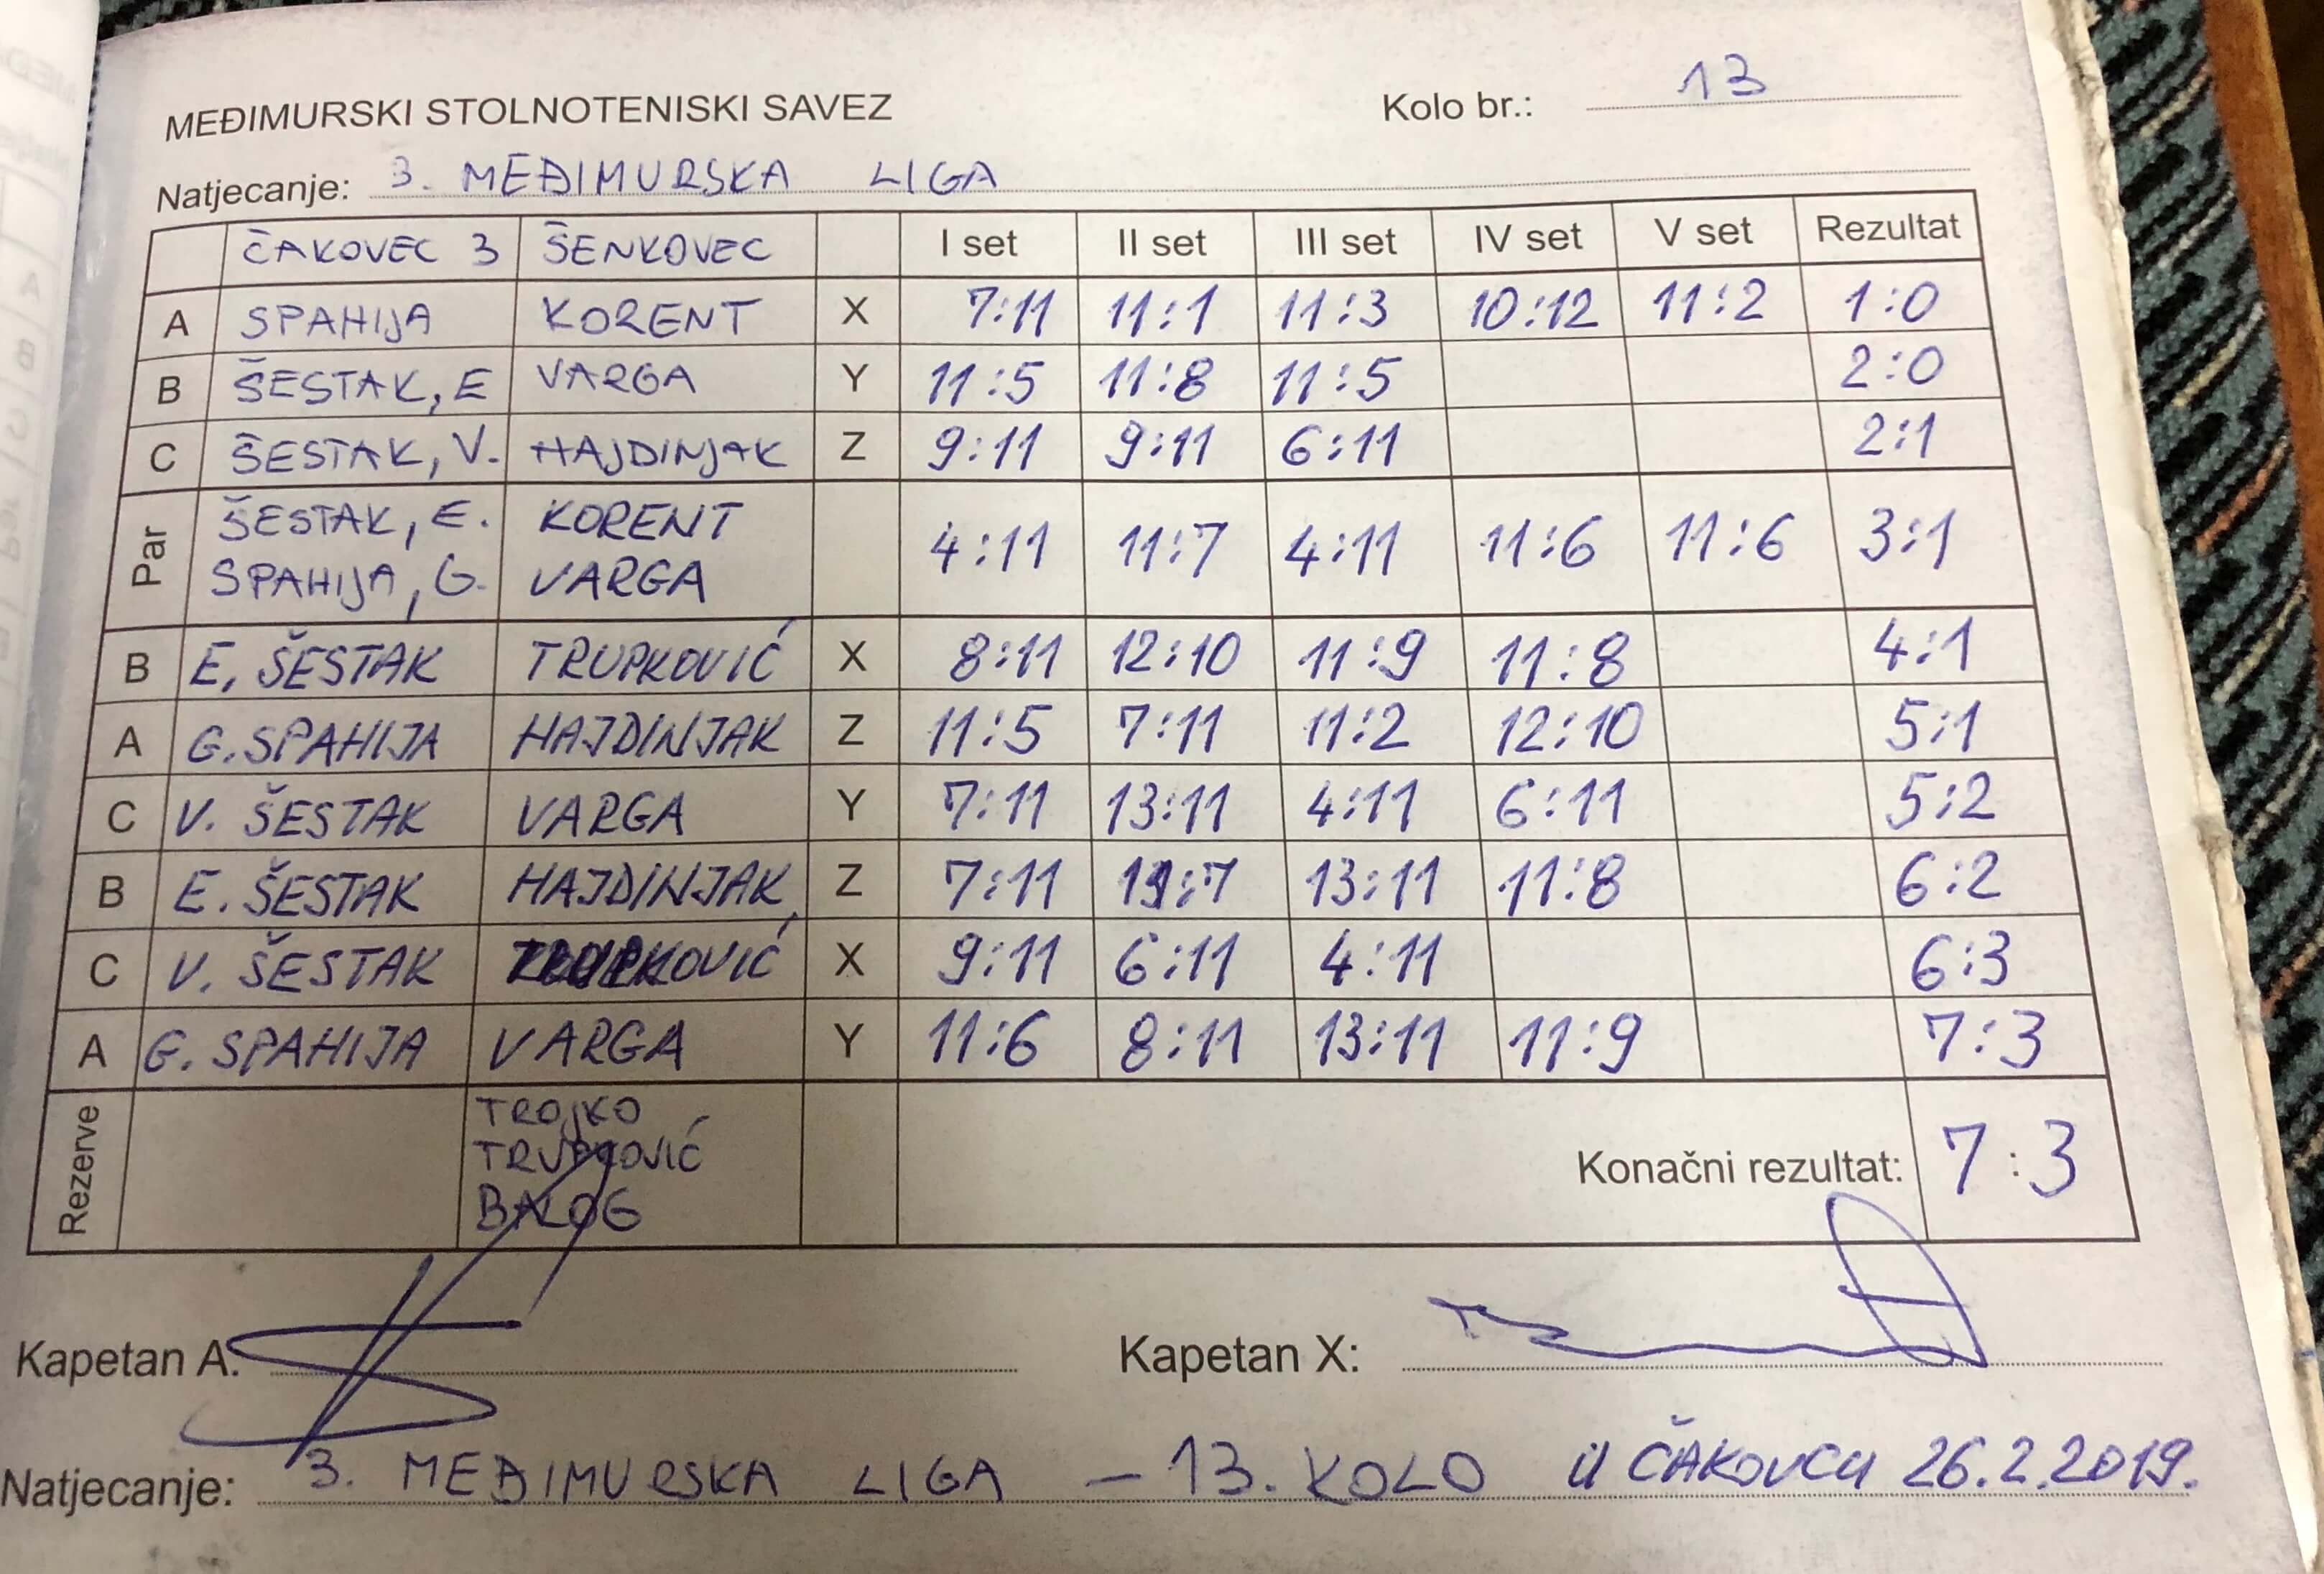 MEĐIMURSKI STOLNOTENISKI SAVEZ Kolo br.: 13
Natjecanje: 3. MEĐIMURSKA LIGA
ČAKOVEC 3 ŠENKOVEC I set II set III set IV set V set Rezultat
A SPAHIJA KORENT X 7:11 11:1 11:3 10:12 11:2 1:0
B ŠESTAK, E VARGA Y 11:5 11:8 11:5 2:0
C ŠESTAK, V. HAJDINJAK Z 9:11 9:11 6:11 2:1
Par ŠESTAK, E. KORENT 4:11 11:7 4:11 11:6 11:6 3:1
SPAHIJA, G. VARGA
B E, ŠESTAK TRUPKOVIĆ X 8:11 12:10 11:9 11:8 4:1
A G. SPAHIJA HAJDINJAK Z 11:5 7:11 11:2 12:10 5:1
C V. ŠESTAK VARGA Y 7:11 13:11 4:11 6:11 5:2
B E. ŠESTAK HAJDINJAK Z 7:11 11:7 13:11 11:8 6:2
C V. ŠESTAK TRUPKOVIĆ X 9:11 6:11 4:11 6:3
A G. SPAHIJA VARGA Y 11:6 8:11 13:11 11:9 7:3
Rezerve TROJKO
TRUPKOVIĆ Konačni rezultat: 7:3
BALOG
Kapetan A: Kapetan X:
Natjecanje: 3. MEĐIMURSKA LIGA – 13. KOLO U ČAKOVCU 26.2.2019.